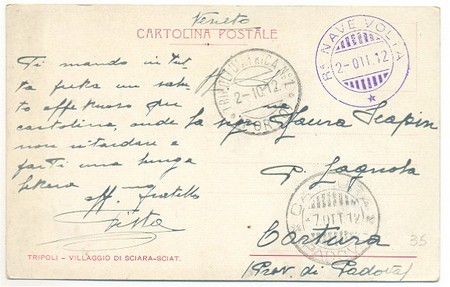 Veneto
CARTOLINA POSTALE
Ra NAVE VOLTA
2-OTT.12
TRIPOLI
2-10-12
Ti mando in tut
ta fretta un salu
to affettuoso per
cartolina, onde
non ritardare a
farti una lunga
lettera
aff.mo fratello
TRIPOLI - VILLAGGIO DI SCIARA-SCIAT.
la Sigra Laura Scapin
P. Lagnola
7.OTT.12
PADOVA
Cartura
(Prov. di Padova)
35